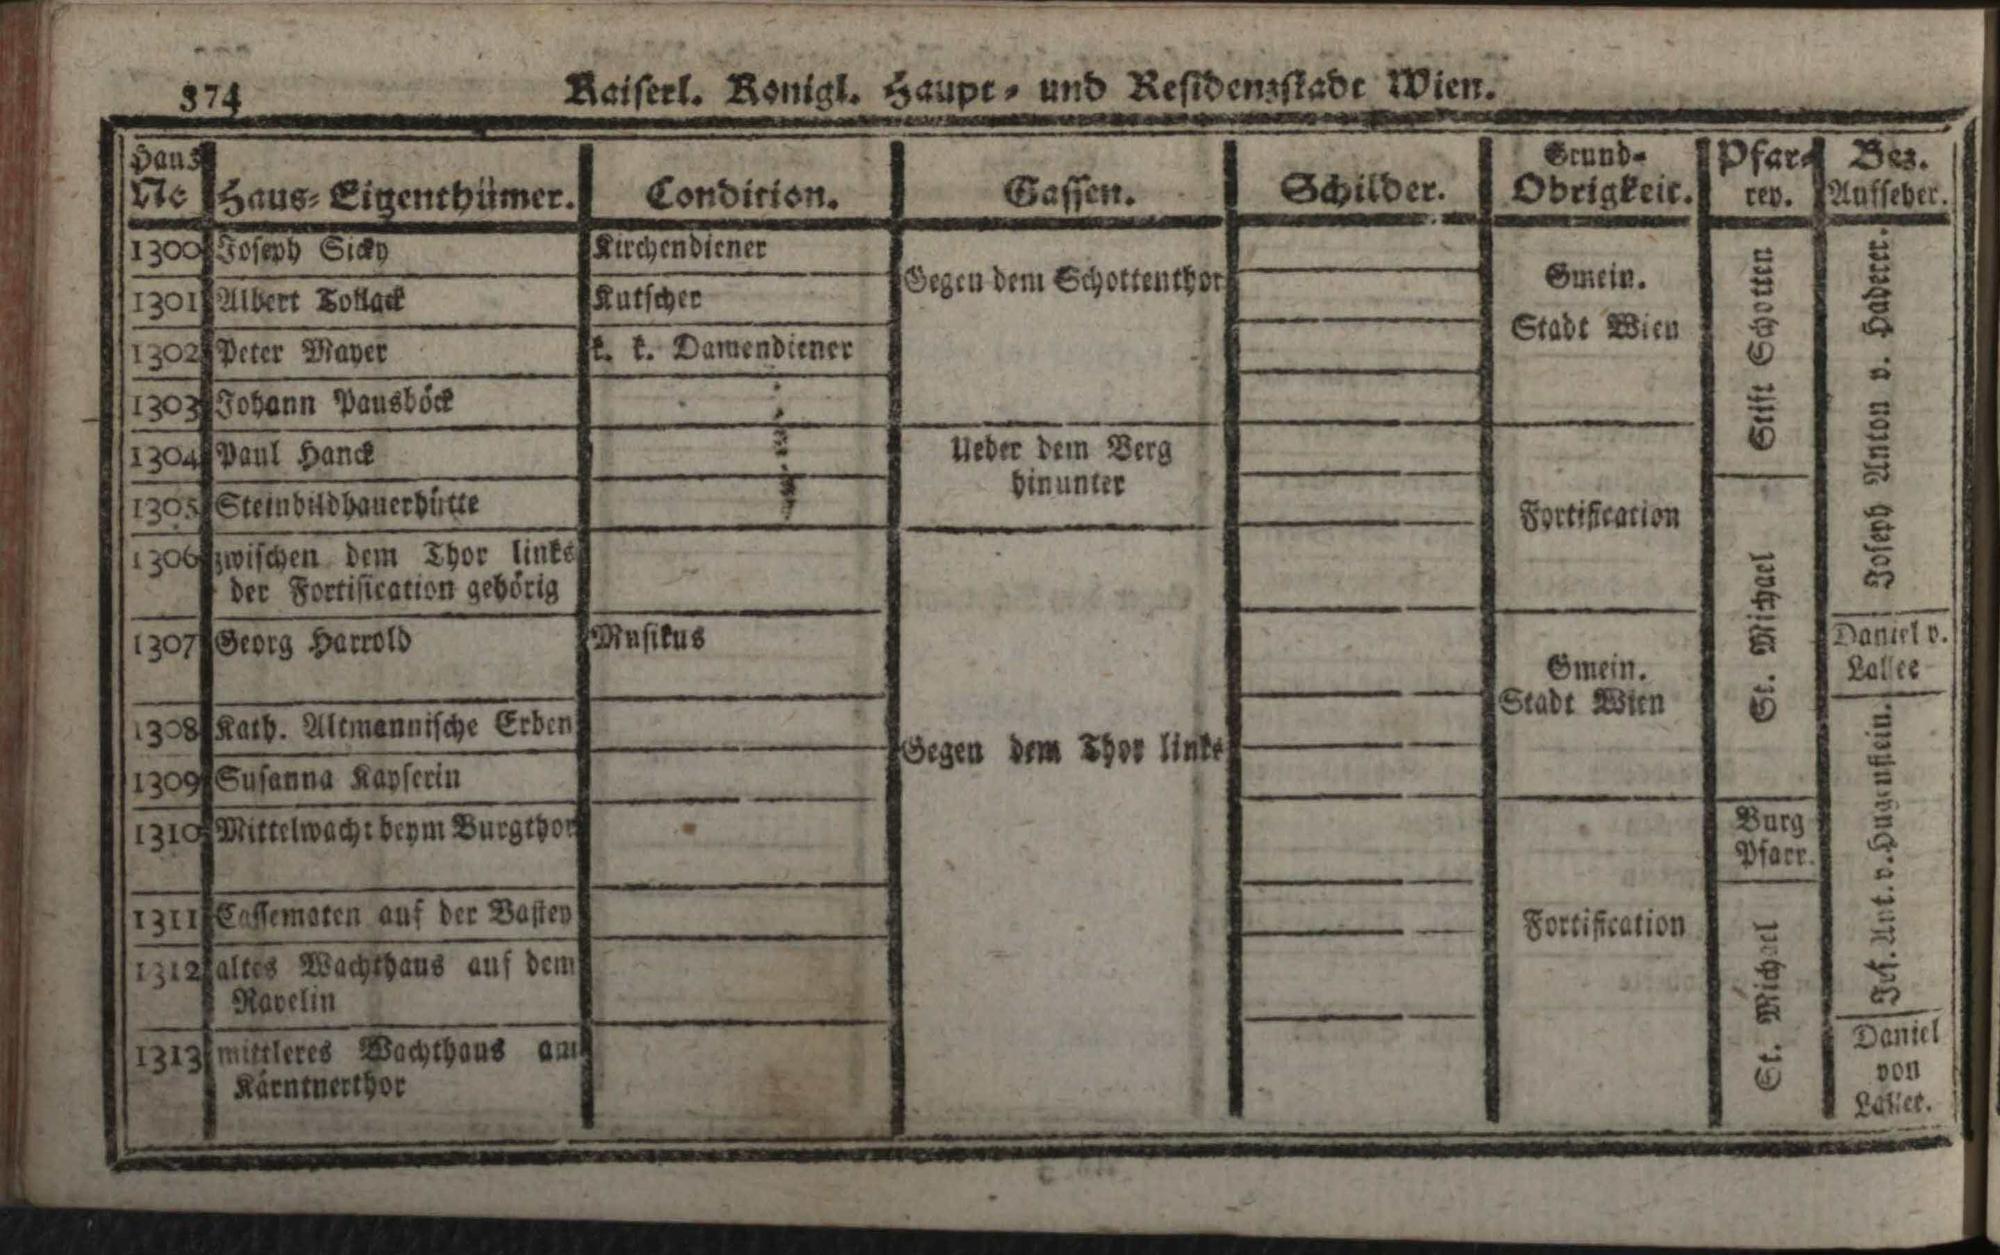 374 Kaiserl. Königl. Haupt- und Residenzstadt Wien.
Haus Nc Haus-Eigenthümer. Condition. Gassen. Schilder. Grund-Obrigkeit. Pfarrey. Bez. Aufseher.
1300 Joseph Sicky Kirchendiener
1301 Albert Tollack Kutscher
1302 Peter Mayer k. k. Damendiener
1303 Johann Pausböck
Gegen dem Schottenthor
Gmein.
Stadt Wien
Stift Schotten
Joseph Anton v. Haderer.
1304 Paul Hanck
1305 Steinbildhauerhütte
Ueber dem Berg
hinunter
1306 zwischen dem Thor links
der Fortification gehörig
Fortification
St. Michael
1307 Georg Harrold Musikus
Daniel v.
Lallee
1308 Kath. Altmannische Erben
1309 Susanna Kayserin
Gmein.
Stadt Wien
Gegen dem Thor links
1310 Mittelwacht beym Burgthor
Burg
Pfarr.
Jos. Ant. v. Hugenstein.
1311 Cassematen auf der Bastey
1312 altes Wachthaus auf dem
Ravelin
1313 mittleres Wachthaus am
Kärntnerthor
Fortification
St. Michael
Daniel
von
Lallee.